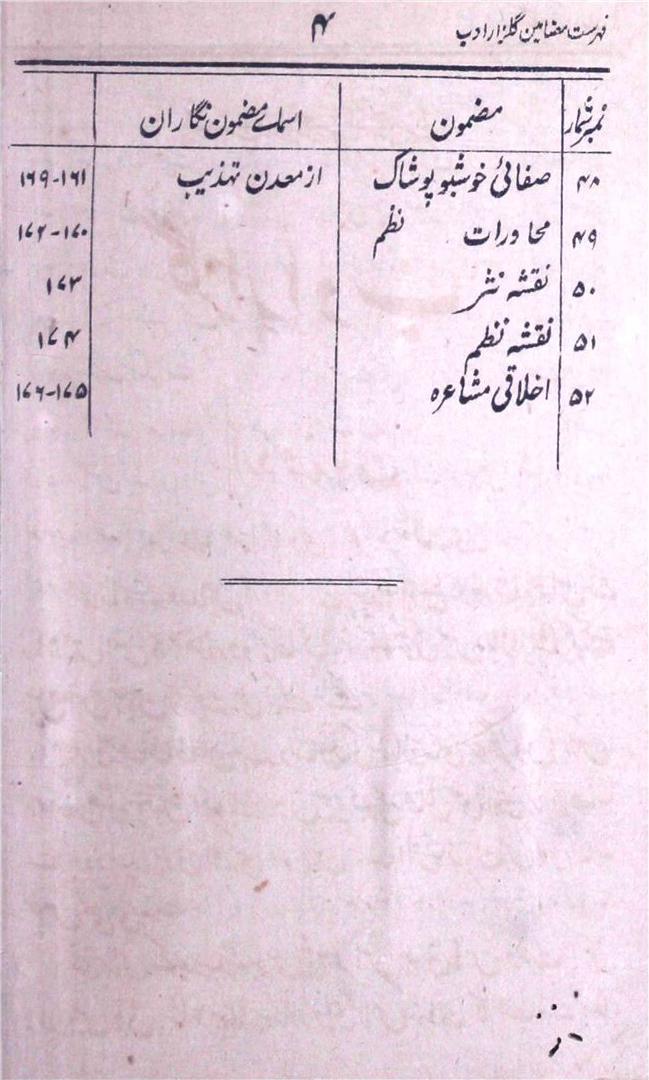 فہرست مضامین گلزار ادب ۴
نمبر شمار مضمون اسمائے مضمون نگاران
۴۸ صفائی خوشبو پوشاک از معدن تہذیب ۱۶۱-۱۶۹
۴۹ محاورات نظم ۱۷۰-۱۷۲
۵۰ نقشہ نثر ۱۷۳
۵۱ نقشہ نظم ۱۷۴
۵۲ اخلاقی مشاعرہ ۱۷۵-۱۷۶